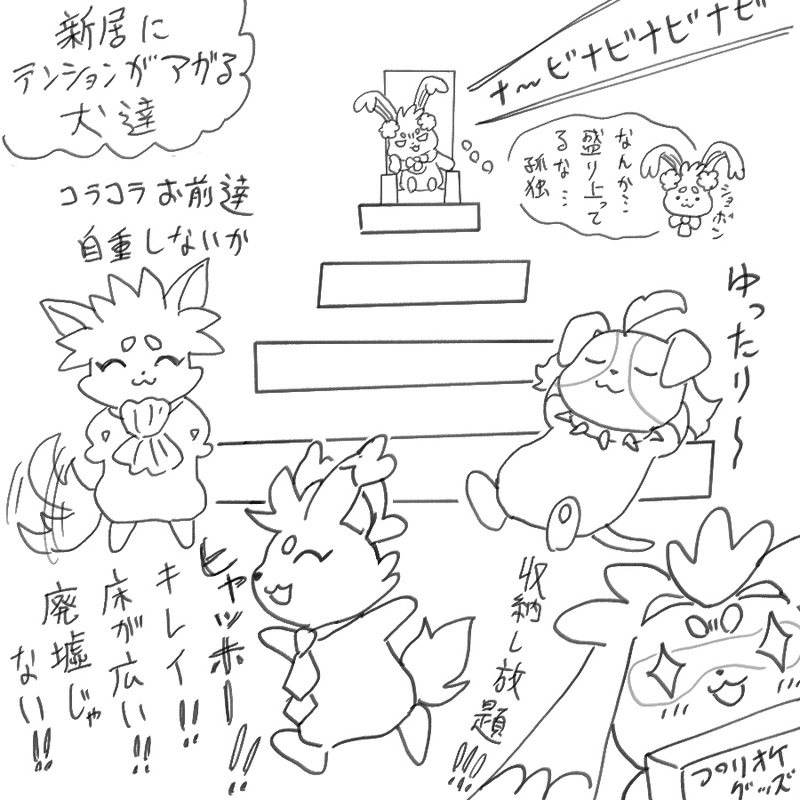 新居に
テンションがアガる
犬達
ナ〜ビナビナビナビ
なんか…
盛り上って
るな…
孤独
ショボン
コラコラお前達
自重しないか
ゆったり〜
ヒャッホー!!
キレイ!!
床が広い!!
廃墟じゃ
ない!!
収納し放題!!!
つのりオケ
グッズ